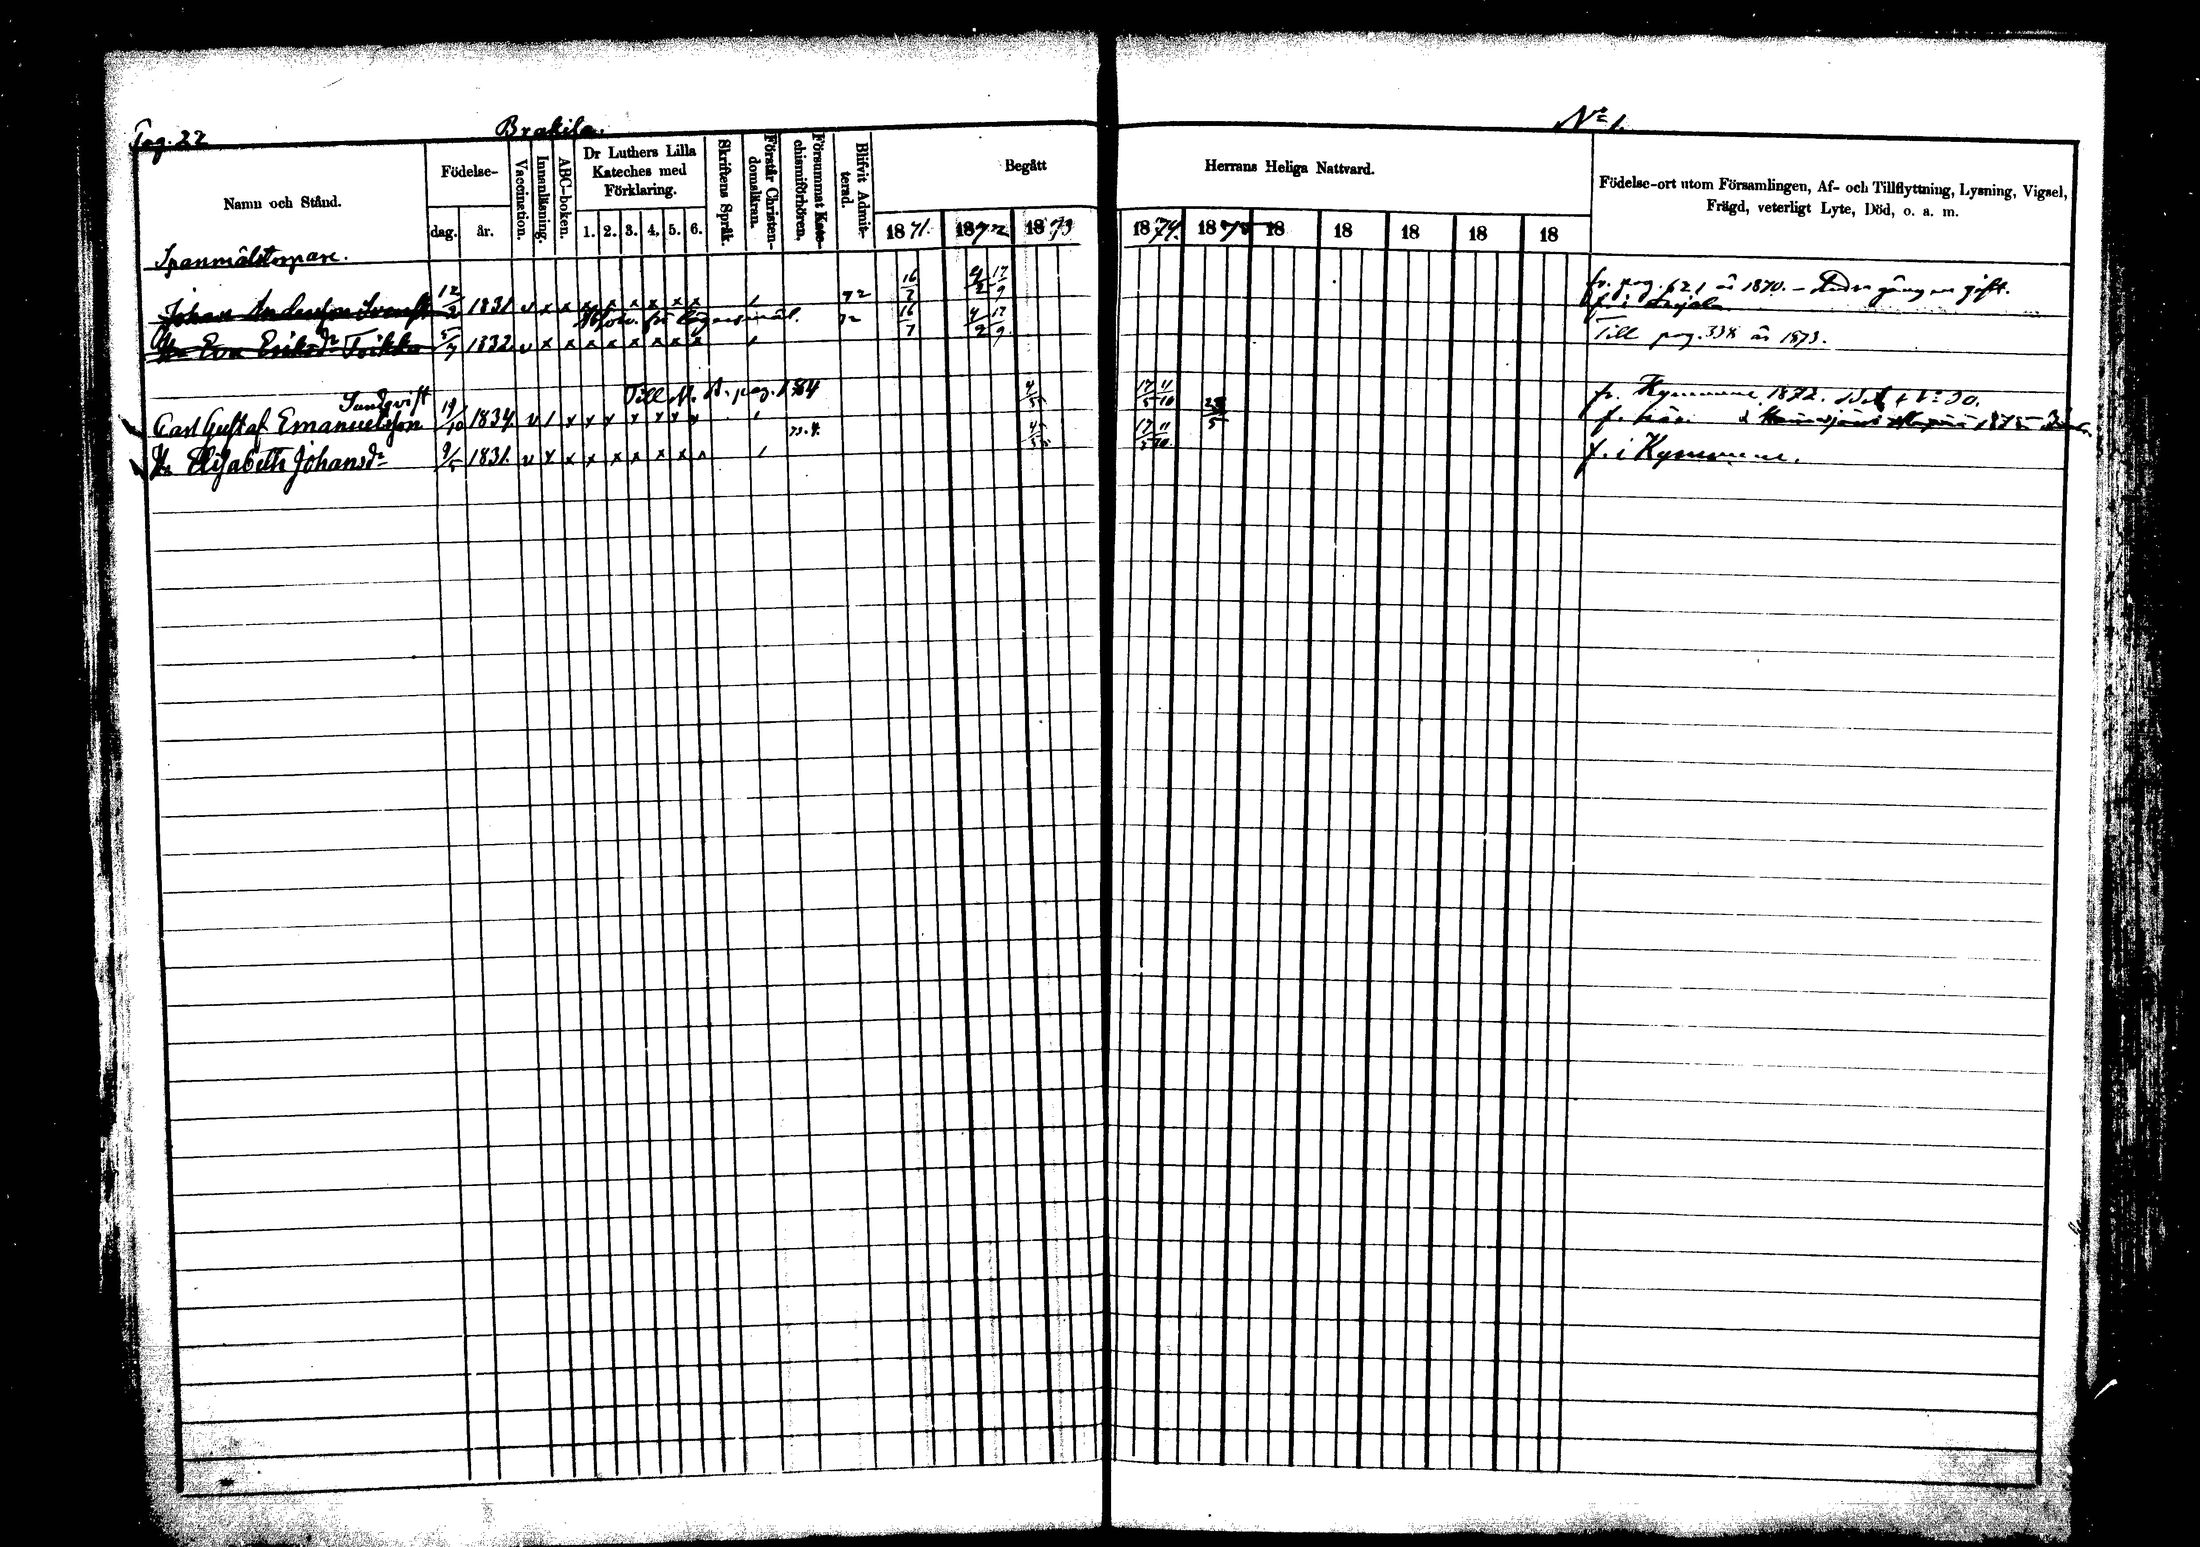 Pag. 22 Brakila. No 1.
Namn och Stånd. Födelse- dag. år. Vaccination. Innanläsning. ABC-boken. Dr Luthers Lilla Kateches med Förklaring. 1. 2. 3. 4. 5. 6. Skriftens Språk. Förstår Christendomsläran. Försummat Katechismiförhören. Blifvit Admitterad. Begått Herrans Heliga Nattvard. Födelse-ort utom Församlingen, Af- och Tillflyttning, Lysning, Vigsel, Frägd, veterligt Lyte, Död, o. a. m.
1871. 1872 1873 1874. 1875 18 18 18 18 18
Spanmålstorpare.
Johan Andersson 12/2 1831. v x x x x x x x x 72 16/7 4/2 17/9 fr. pag. 621 år 1870. – Andra gången gift.
Absolv. för lägersmål. f. i Anjala
Hu Eva Eriksdr Toikka 5/7 1832. v x x x x x x x x 72 16/7 4/2 17/9 Till pag. 338 år 1873.
Sundqvist Till N. B. pag. 184 fr. Kymmene 1872.
Carl Gustaf Emanuelsson 19/10 1834. v / x x x x x x x 4/5 17/5 11/10 23/5 f. här.
Hu Elisabeth Johansdr 9/5 1831. v x x x x x x x x 73.4. 4/5 17/5 11/10 f. i Kymmene.